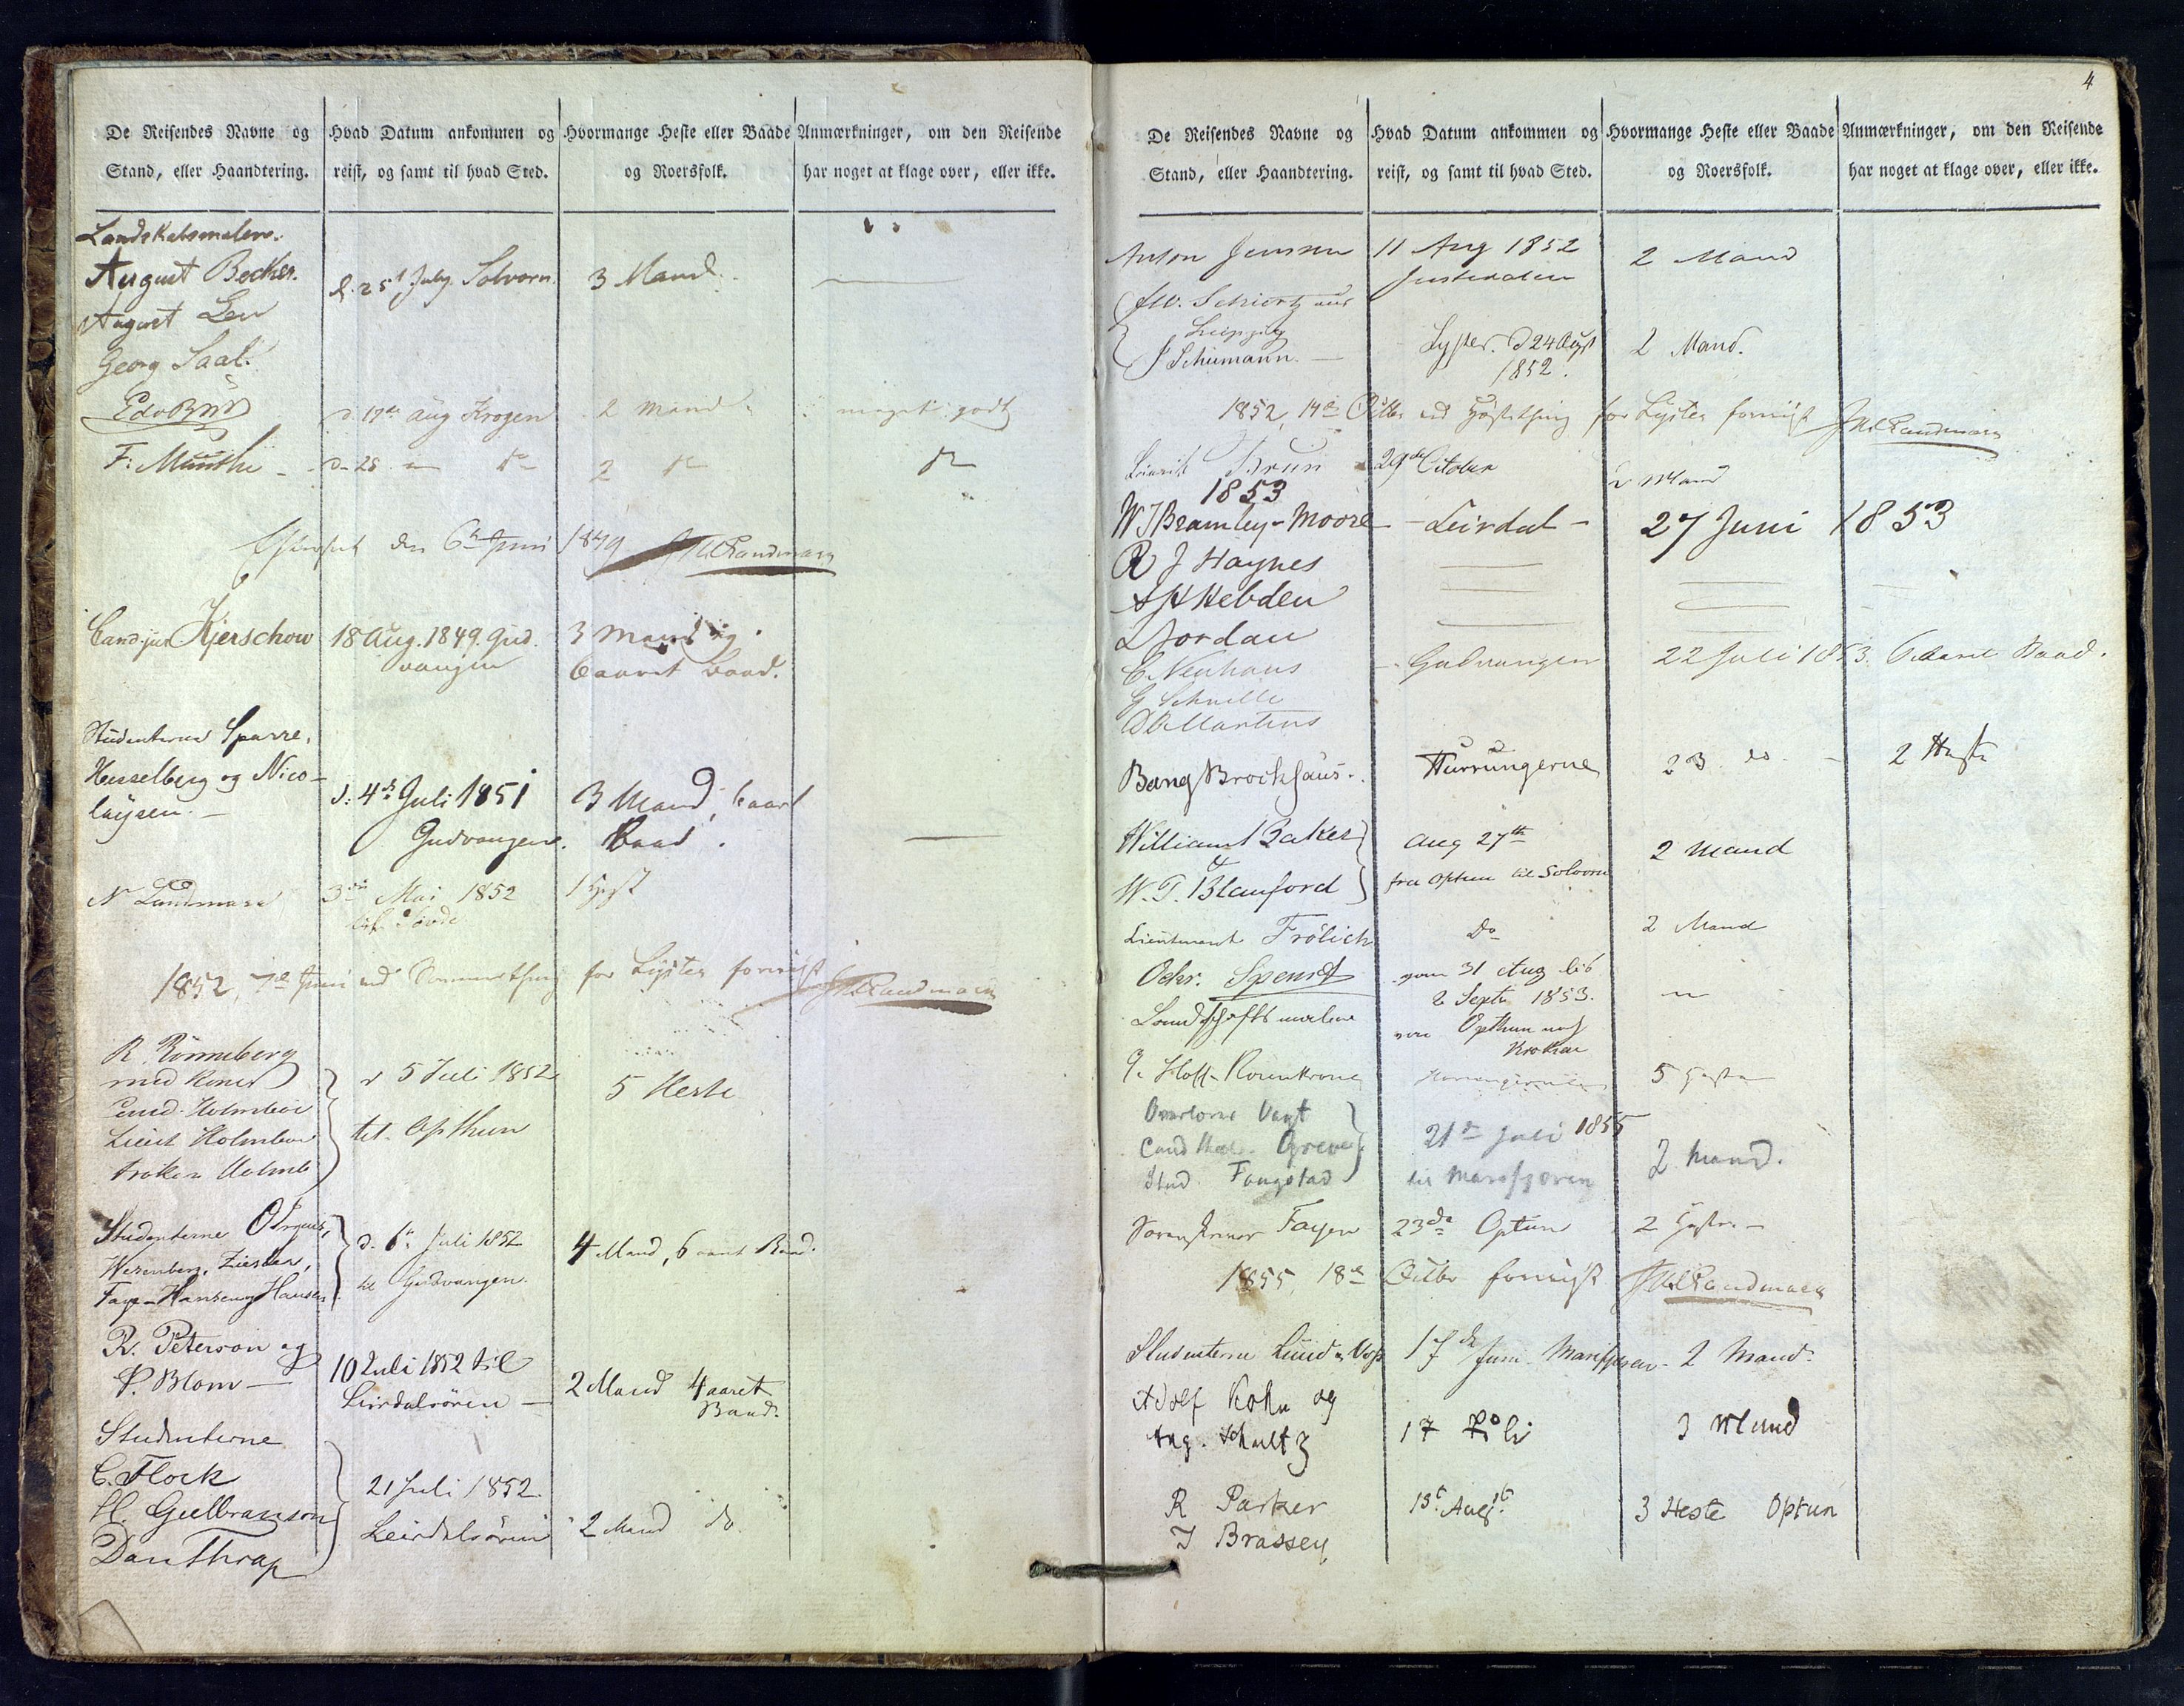 De Reisendes Navne og
Stand, eller Haandtering.
Hvad Datum ankommen og
reist, og samt til hvad Sted.
Hvormange Heste eller Baade
og Roersfolk.
Anmærkninger, om den Reisende
har noget at klage over, eller ikke.
Landskabsmalere.
August Becker. d. 25t July Solvorn 3 Mand.
August Leu
Georg Saal.
d. 17de aug Krogen 2 mand meget godt
F. Münthe d. 28
den 6te Juni 1849 Landmark
Cand. jur Kjerschow 18 Aug. 1849. Gud- 3 Mand og
vangen 6 aaret Baad.
Studenterne Sparre,
Hesselberg og Nico-
laysen. d: 4de Juli 1851 3 Mand, 6 aart
Gudvangen. Baad.
N Landmark 3die Mai 1852 1 Hest
til
1852, 7de Juni ved Sommerthing for Lyster forevist Landmark
R. Rönneberg
med Kone d 5 Juli 1852 5 Heste
Holmboe
Lieut Holmboe til Opthun
frøken Holmb
Studenterne
d. 6te Juli 1852 4 Mand, 6 aart Baad.
Faye-Hansen og Hansen til Gudvangen.
R. Peterson og
P. Blom 10 Juli 1852 til
Leirdalsören 2 Mand 4 aaret
Baad.
Studenterne
C. Flock 21 Juli 1852.
H. Gulbranson Leirdalsören 2 Mand do.
Dan Thrap
4
De Reisendes Navne og
Stand, eller Haandtering.
Hvad Datum ankommen og
reist, og samt til hvad Sted.
Hvormange Heste eller Baade
og Roersfolk.
Anmærkninger, om den Reisende
har noget at klage over, eller ikke.
Anton Jensen 11 Aug 1852 2 Mand
Justedalen
F.W. Schiertz aus
Leipzig
Schumann. Lyster. d 24 Augt 2 Mand.
1852.
1852, 14de Octbr ved Høstthing for Lyster forevist Landmark
Brun 29de October 2 Mand
1853
W J Bramley-Moore Leirdal 27 Juni 1853
R J Haynes
Hebden
L Jordan
C. Neuhaus Gudvangen 22 Juli 1853. 6 aaret Baad.
G Schnelle
Martens
Bang Brockhaus. Hurrungerne 2 3 do. 2 Heste
William Baker Aug 27th 2 Mand
&
W. T. Blanford fra Optun til Solvorn
Lieutenant Frölich Do 2 Mand
vom 31 Aug bis
2 Septr 1853.
Landschaftsmaler von Opthun nach
Krokan
Hoff-Rosenkrone 5 Heste
Overlærer Vogt
Cand theol. Greve 21de Juli 1855 2 Mand.
Stud. Fougstad til Marifjæren
Sorenskriver Fayen 23de Optun 2 Heste
1855, 18de Octbr forevist Landmark
Studenterne Lund & Voss 17de Juni Marifjæren 2 Mand.
Adolf Kohn og
Aug. Schultz 17 Juli 3 Mand
R Parker 15t Augst. 3 Heste Optun
J Brassey